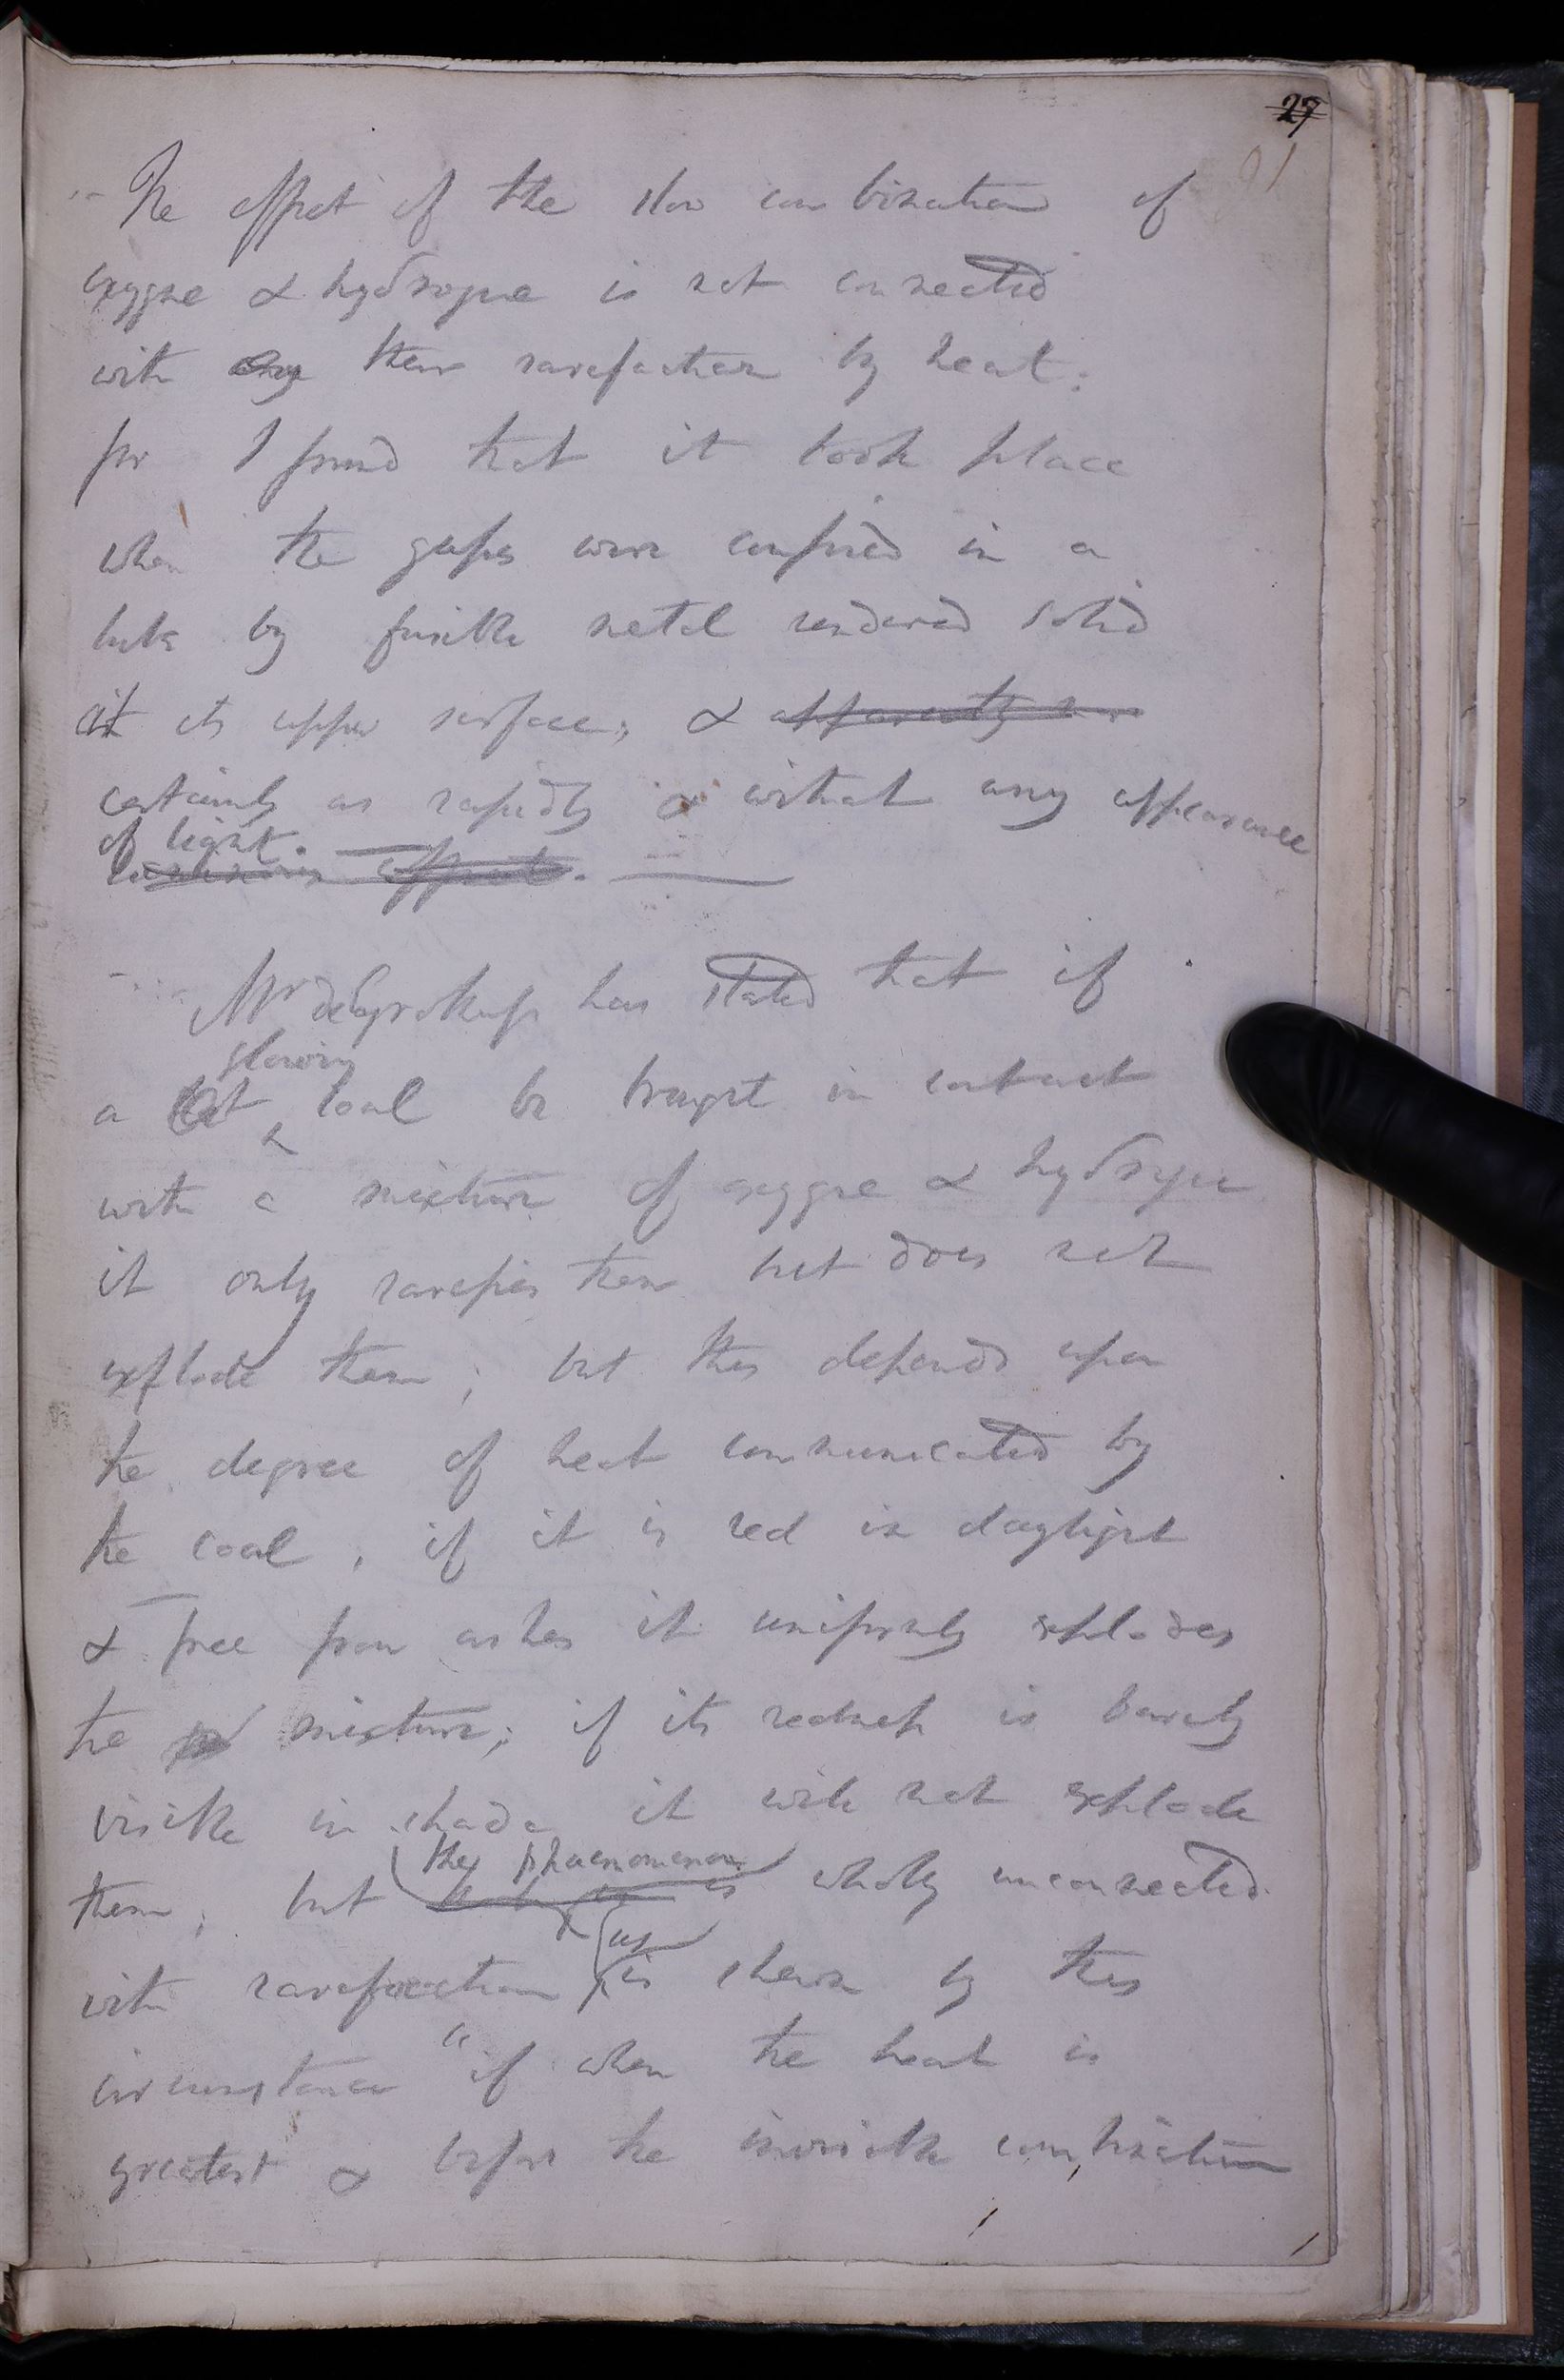 27
91
The effect of the slow combination of
oxygene & hydrogene is not connected
with any their rarefaction by heat;
for I found that it took place
when the gasses were confined in a
tube by fusible metal rendered solid
at its upper surface; & apparently
certainly as rapidly & without any appearance
of light.
luminous effect.
Mr de Grotthuss has stated that if
glowing
a hot coal be brought in contact
with a mixture of oxygene & hydrogene
it only rarefies them but does not
explode them; but this depends upon
the degree of heat communicated by
the coal, if it is red in daylight
& free from ashes it uniformly explodes
the mixture; if its redness is barely
visible in shade it will not explode
the phaenomenon
them; but is wholly unconnected
as
with rarefaction is shewn by this
circumstance "if when the heat is
greatest & before the invisible combination